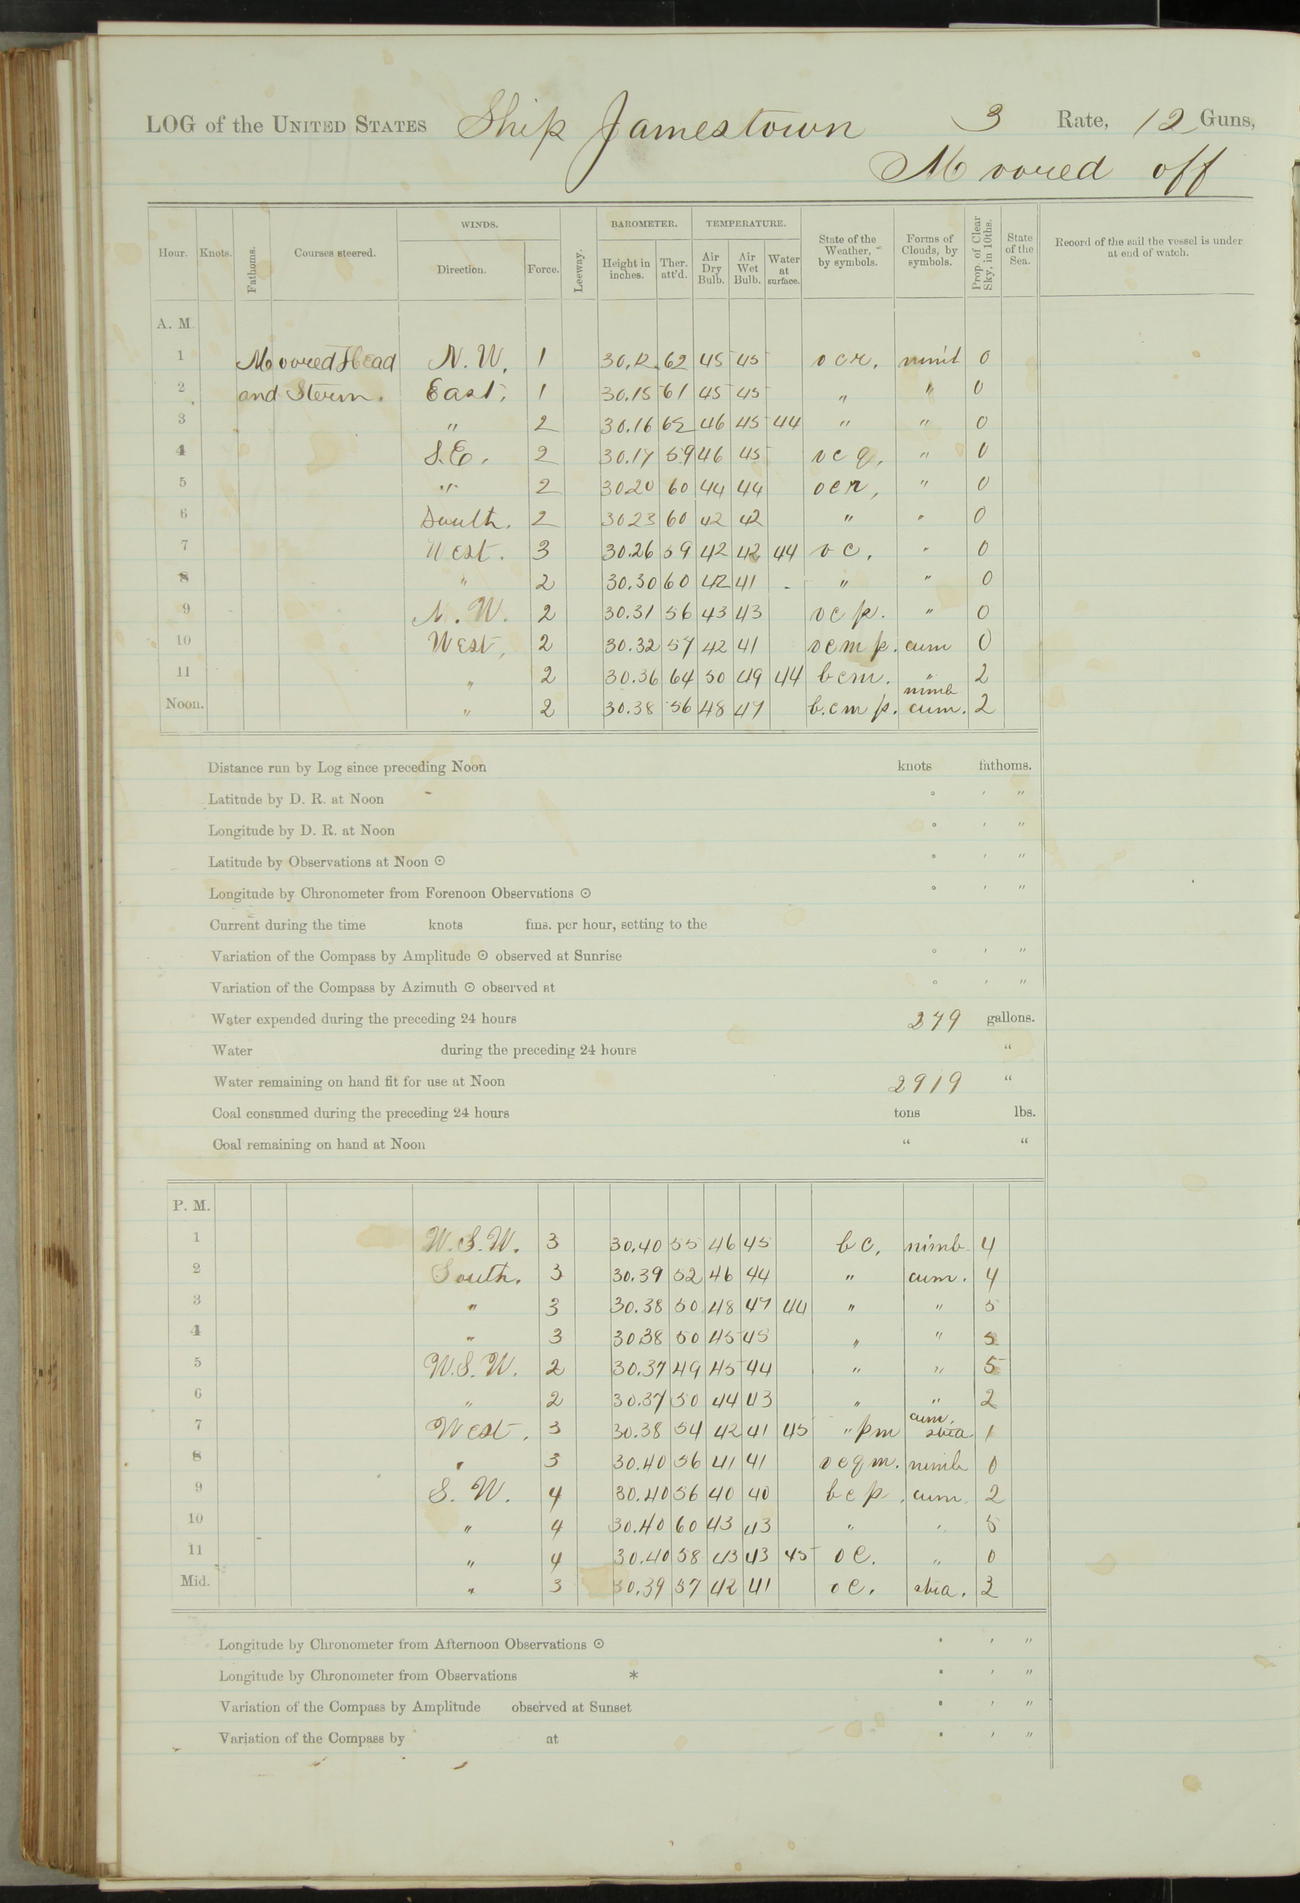 LOG of the UNITED STATES Ship Jamestown 3 Rate, 12 Guns,
Moored off
Hour. Knots. Fathoms. Courses steered. WINDS. Direction. Force. Leeway. BAROMETER. Height in inches. Ther. att'd. TEMPERATURE. Air Dry Bulb. Air Wet Bulb. Water at surface. State of the Weather, by symbols. Forms of Clouds, by symbols. Prop. of Clear Sky, in 10ths. State of the Sea. Record of the sail the vessel is under at end of watch.
A. M.
1 Moored Head N. W. 1 30.12 62 45 45 o c r. nimb 0
2 and Stern. East. 1 30.15 61 45 45 " " 0
3 " 2 30.16 62 46 45 44 " " 0
4 S.E. 2 30.17 59 46 45 o c q. " 0
5 " 2 30.20 60 44 44 o c r, " 0
6 South. 2 30 23 60 42 42 " " 0
7 West. 3 30.26 59 42 42 44 o c. " 0
8 " 2 30.30 60 42 41 " " 0
9 N. W. 2 30.31 56 43 43 o c p. " 0
10 West, 2 30.32 57 42 41 o c m p. cum 0
11 " 2 30.36 64 50 49 44 b c m. " 2
Noon. " 2 30.38 56 48 47 b. c m p. nimb cum. 2
Distance run by Log since preceding Noon knots fathoms.
Latitude by D. R. at Noon ° ' "
Longitude by D. R. at Noon ° ' "
Latitude by Observations at Noon ⊙ ° ' "
Longitude by Chronometer from Forenoon Observations ⊙ ° ' "
Current during the time knots fms. per hour, setting to the
Variation of the Compass by Amplitude ⊙ observed at Sunrise ° ' "
Variation of the Compass by Azimuth ⊙ observed at ° ' "
Water expended during the preceding 24 hours 279 gallons.
Water during the preceding 24 hours "
Water remaining on hand fit for use at Noon 2919 "
Coal consumed during the preceding 24 hours tons lbs.
Coal remaining on hand at Noon " "
P. M.
1 W. S. W. 3 30.40 55 46 45 b c. nimb. 4
2 South. 3 30.39 52 46 44 " cum. 4
3 " 3 30.38 50 48 47 44 " " 5
4 " 3 30.38 50 45 45 " " 5
5 W. S. W. 2 30.37 49 45 44 " " 5
6 " 2 30.37 50 44 43 " " 2
7 West. 3 30.38 54 42 41 45 " p m cum. stra 1
8 " 3 30.40 56 41 41 o c q m. nimb 0
9 S. W. 4 30.40 56 40 40 b c p. cum. 2
10 " 4 30.40 60 43 43 " " 5
11 " 4 30.40 58 43 43 45 o c. " 0
Mid. " 3 30.39 57 42 41 o c. stra. 3
Longitude by Chronometer from Afternoon Observations ⊙ ° ' "
Longitude by Chronometer from Observations * ° ' "
Variation of the Compass by Amplitude observed at Sunset ° ' "
Variation of the Compass by at ° ' "